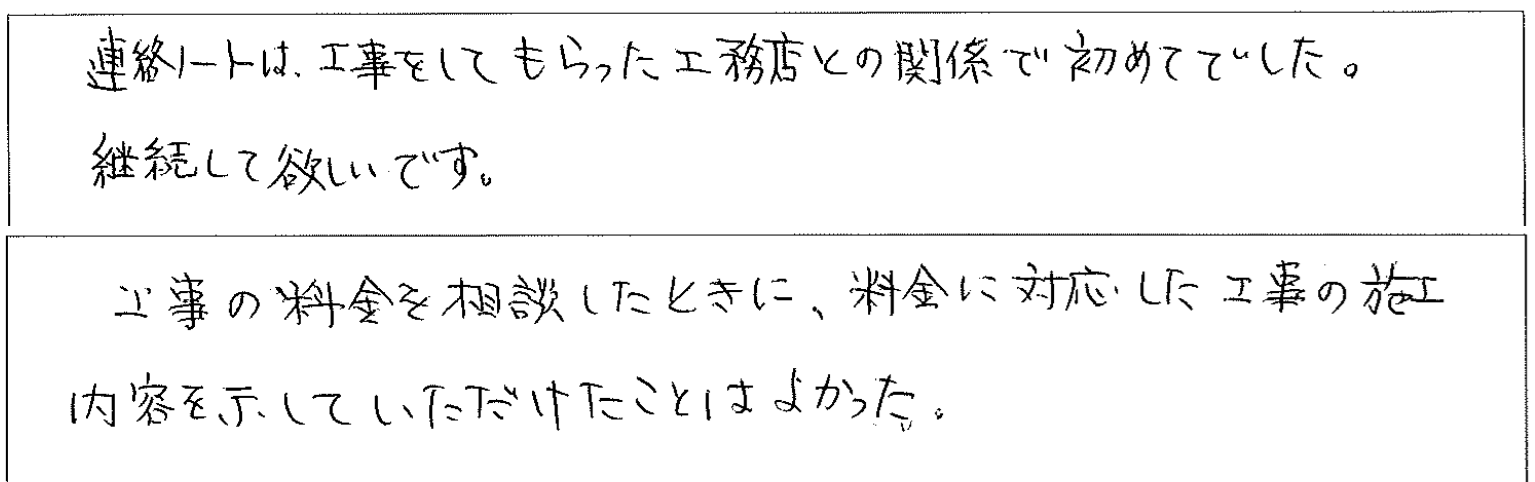 連絡ノートは、工事をしてもらった工務店との関係で初めてでした。
継続して欲しいです。
工事の料金を相談したときに、料金に対応した工事の施工
内容を示していただけたことはよかった。